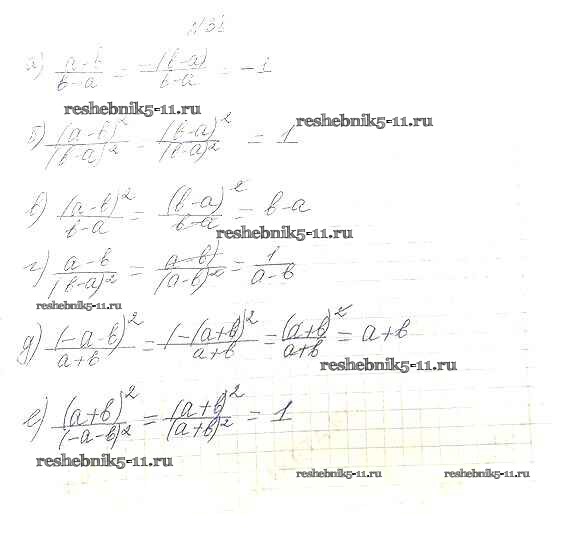 №31
а) (a-b)/(b-a) = -(b-a)/(b-a) = -1
reshebnik5-11.ru
reshebnik5-11.ru
б) (a-b)²/(b-a)² = (b-a)²/(b-a)² = 1
в) (a-b)²/(b-a) = (b-a)²/(b-a) = b-a
reshebnik5-11.ru
г) (a-b)/(b-a)² = (a-b)/(a-b)² = 1/(a-b)
reshebnik5-11.ru
д) (-a-b)²/(a+b) = (-(a+b))²/(a+b) = (a+b)²/(a+b) = a+b
reshebnik5-11.ru
е) (a+b)²/(-a-b)² = (a+b)²/(a+b)² = 1
reshebnik5-11.ru
reshebnik5-11.ru
reshebnik5-11.ru